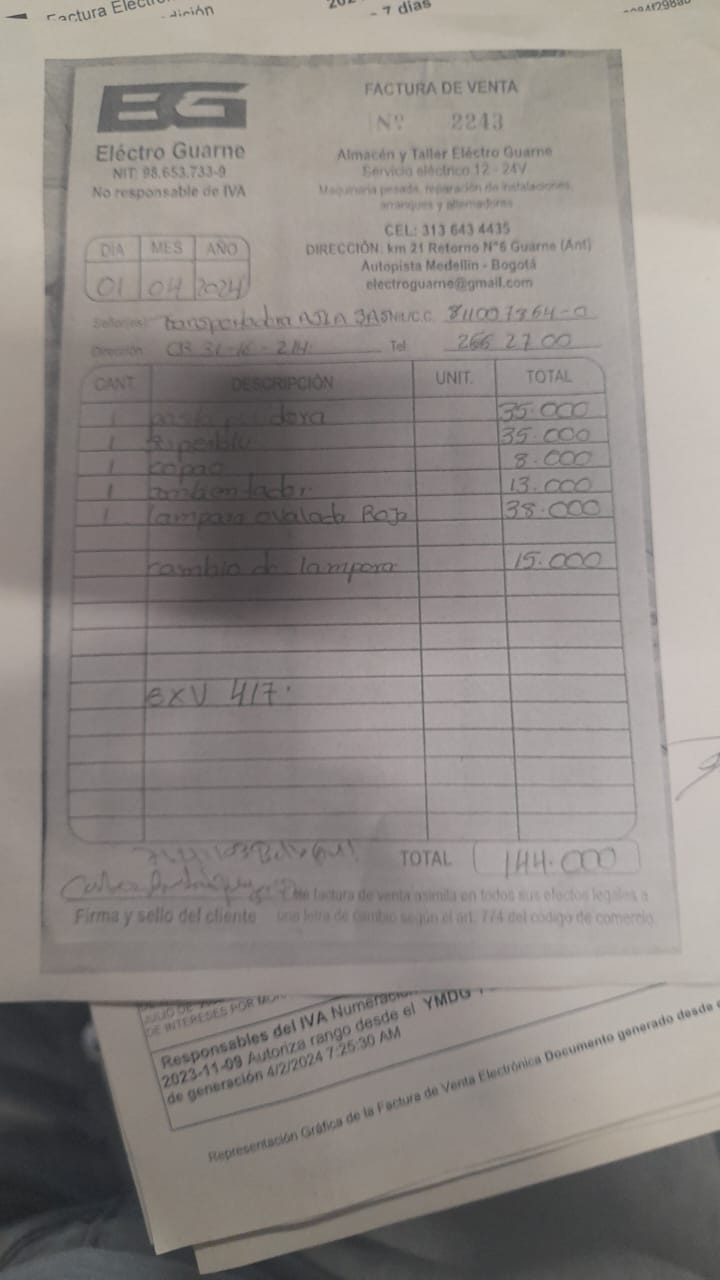 Factura Elect
dición
- 7 días
EG
Eléctro Guarne
NIT: 98.653.733-9
No responsable de IVA
FACTURA DE VENTA
Nº 2243
Almacén y Taller Eléctro Guarne
Servicio eléctrico 12 - 24V
Maquinaria pesada, reparación de instalaciones,
arranques y alternadores
CEL: 313 643 4435
DIRECCIÓN: km 21 Retorno N°6 Guarne (Ant)
Autopista Medellin - Bogotá
electroguarne@gmail.com
DIA MES AÑO
01 04 2024
Señor(es): SAS 811007364-0
Dirección: CR Tel 266 27 00
CANT. DESCRIPCIÓN UNIT. TOTAL
1 pasta pulidora 35.000
1 35.000
1 8.000
1 ambientador 13.000
1 lampara ovalado Rojo 38.000
cambio de lampara 15.000
417
TOTAL 144.000
Esta factura de venta asimila en todos sus efectos legales a
Firma y sello del cliente una letra de cambio según el art. 774 del código de comercio.
JULIO DE
DE INTERESES POR
Responsables del IVA Numeración
2023-11-09 Autoriza rango desde el YMDG
de generación 4/2/2024 7:25:30 AM
Representación Gráfica de la Factura de Venta Electrónica Documento generado desde